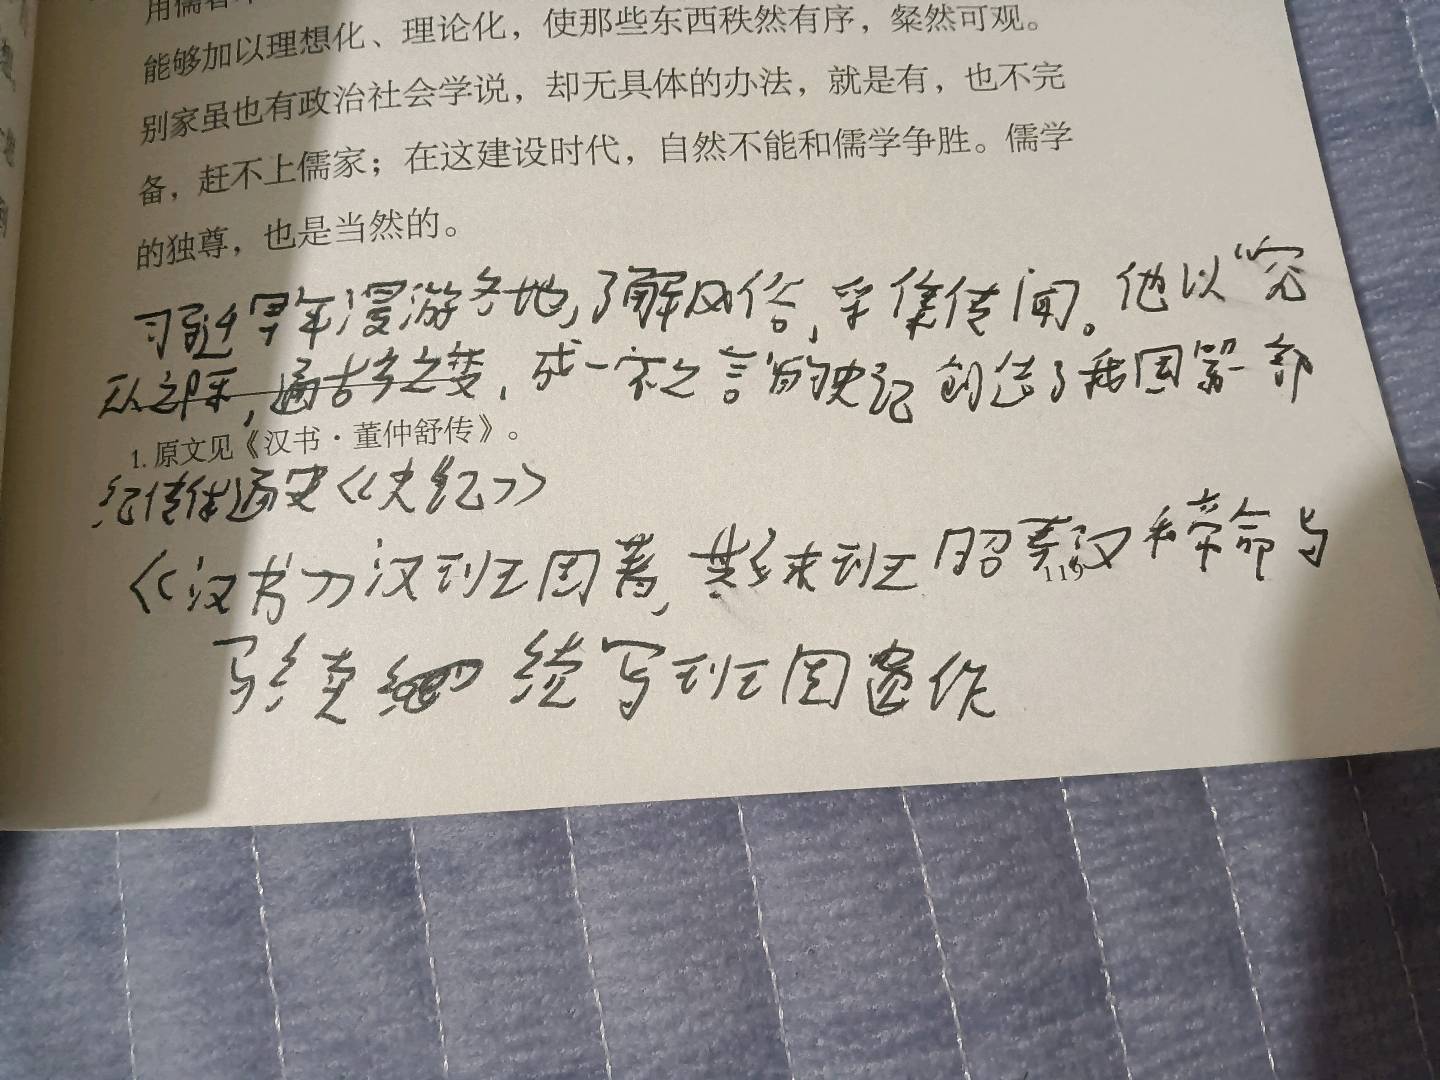 用儒者
能够加以理想化、理论化，使那些东西秩然有序，粲然可观。
别家虽也有政治社会学说，却无具体的办法，就是有，也不完
备，赶不上儒家；在这建设时代，自然不能和儒学争胜。儒学
的独尊，也是当然的。
早年漫游各地，了解风俗，采集传闻。他以“究
之际，通古今之变，成一家之言”的史记创造了我国第一部
1. 原文见《汉书·董仲舒传》。
纪传体通史《史纪》
《汉书》汉班固著，其妹班昭奉汉和帝命与
115
写 续写班固遗作